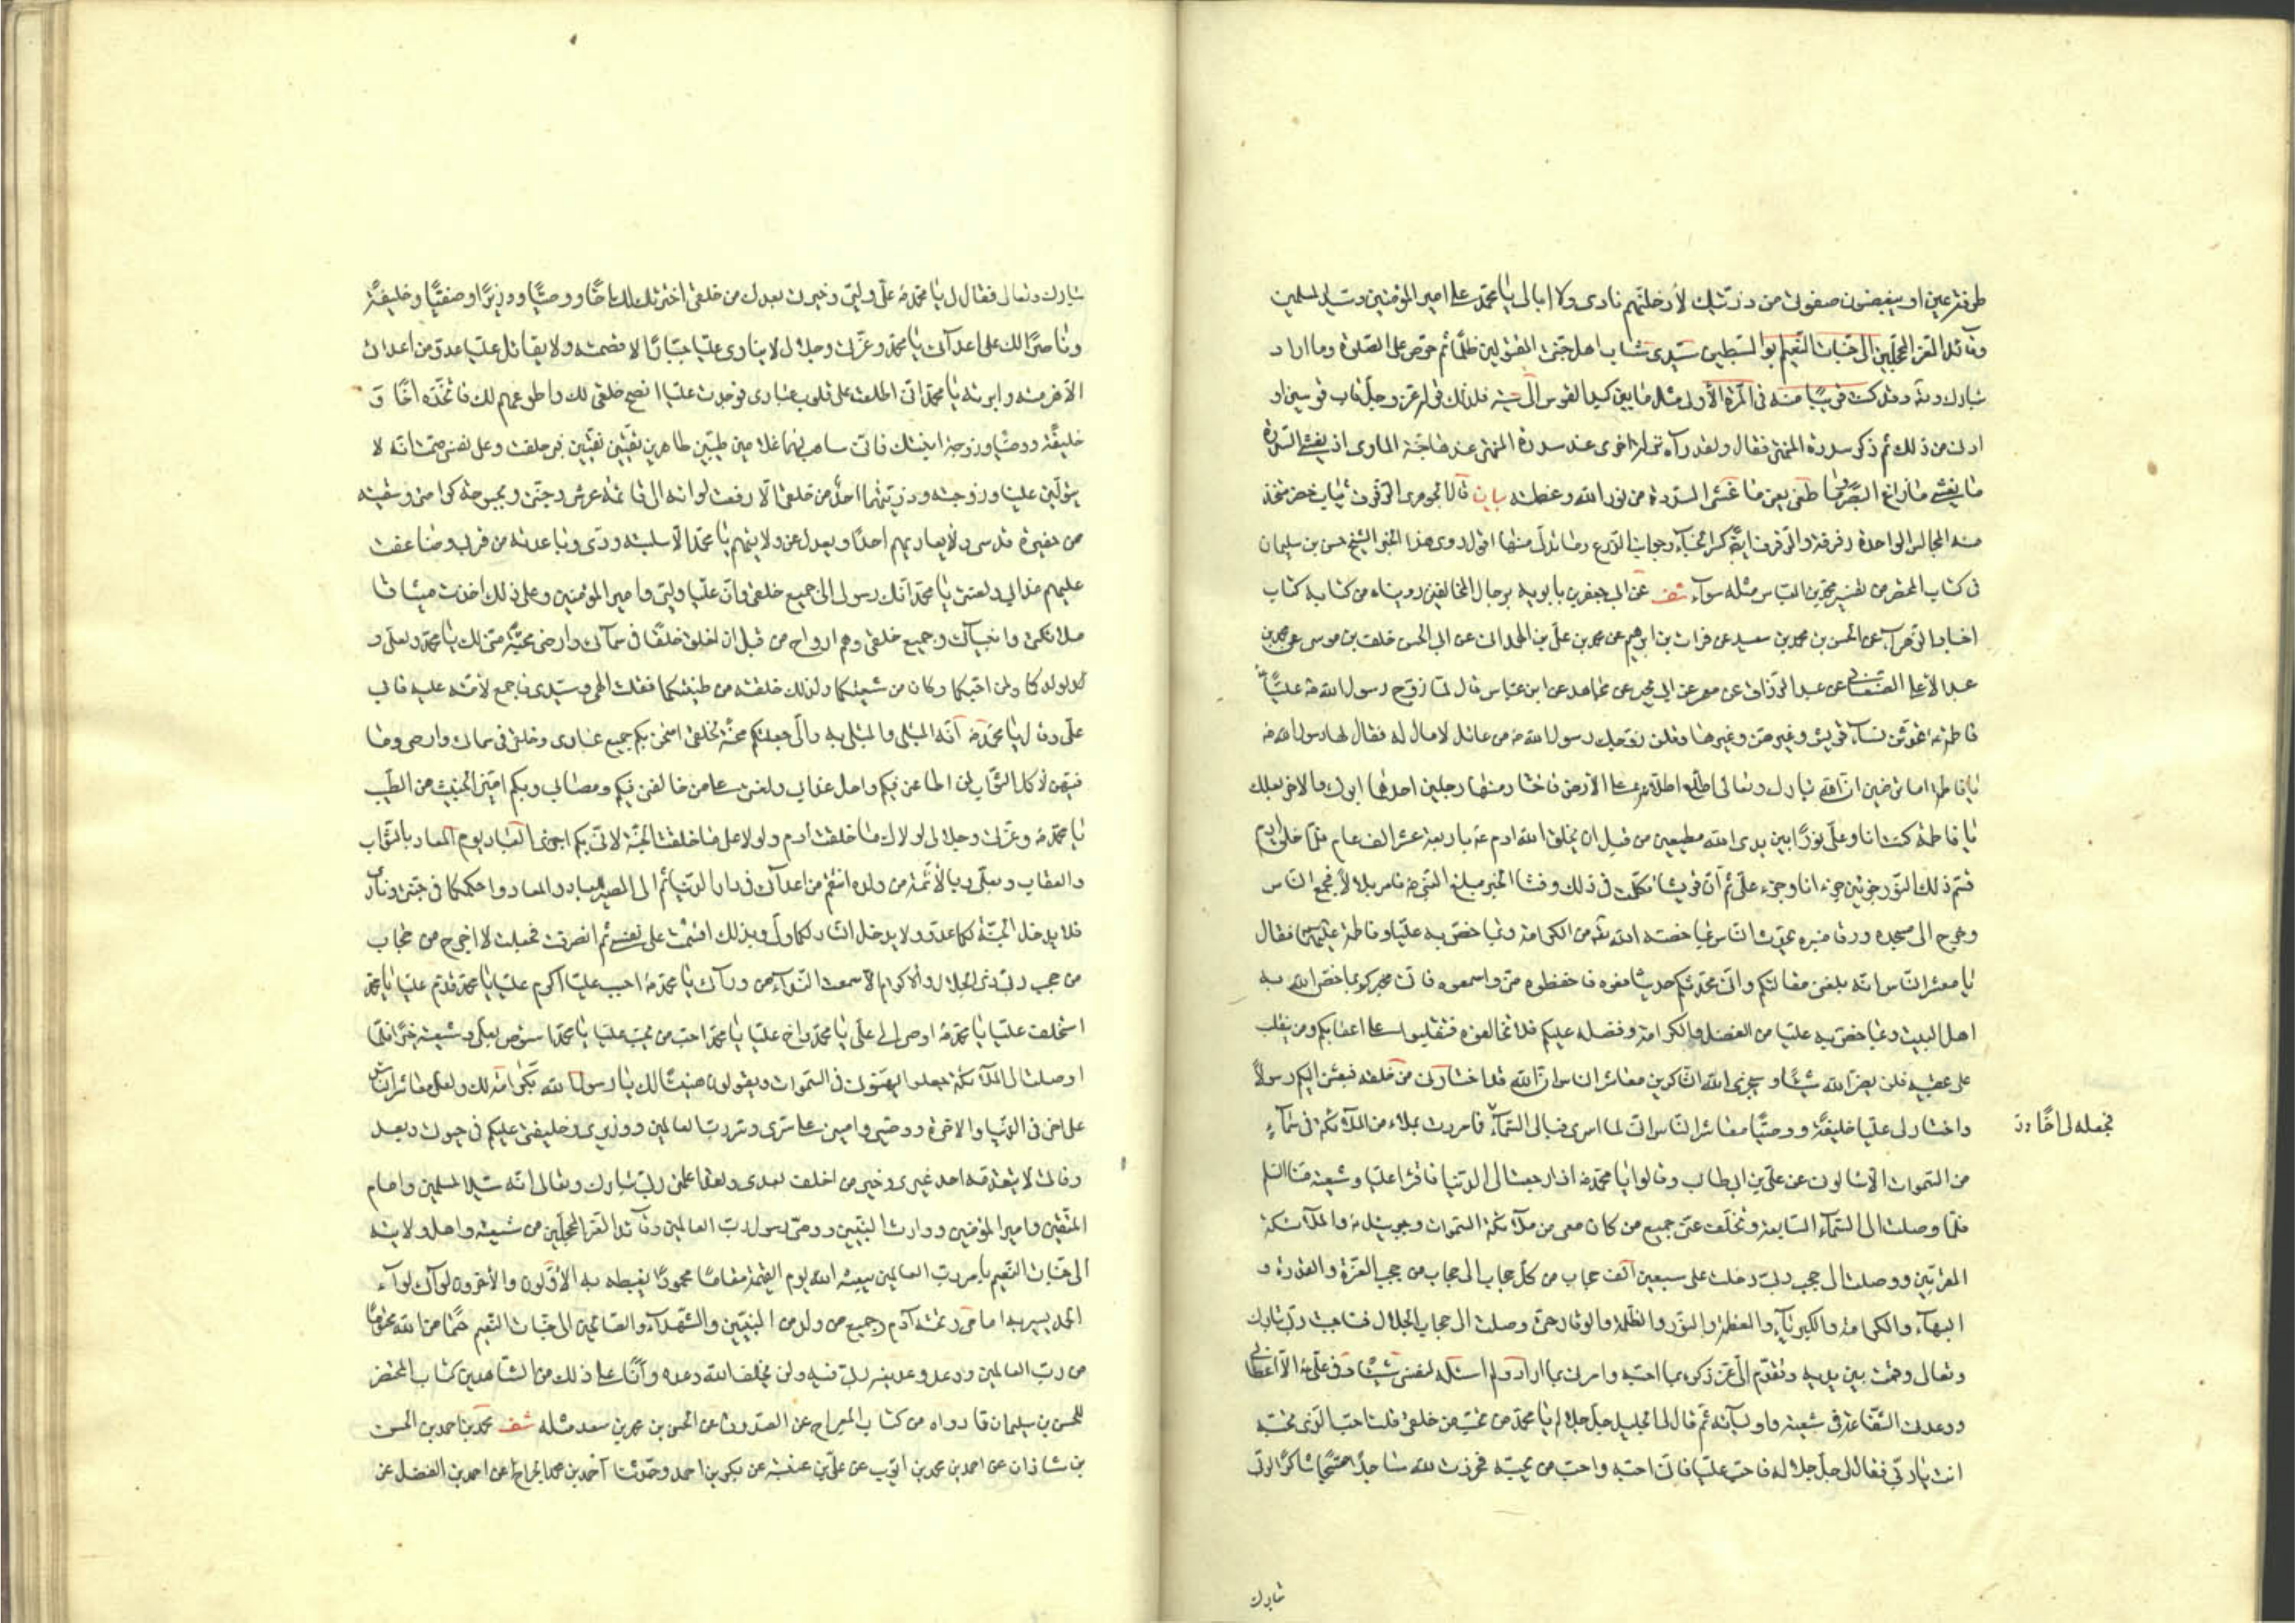 طرفة عين او يبغضون صفوتي من ذريتك لأدخلنهم ناري ولا ابالي يا محمد علي امير المؤمنين وسيد المسلمين
وقائد الغر المحجلين الى جنات النعيم ابو السبطين سيدي شباب اهل جنتي المقتولين ظلما ثم حرض على الصلوة وما اراد
تبارك وتعالى وقد كنت قريبا منه في المرة الأولى مثل ما بين كبد القوس الى سيته فذلك قوله عز وجل قاب قوسين او
ادنى من ذلك ثم ذكر سدرة المنتهى فقال ولقد رآه نزلة اخرى عند سدرة المنتهى عندها جنة المأوى اذ يغشى السدرة
ما يغشى ما زاغ البصر وما طغى يعني ما غشى السدرة من نور الله وعظمته بيان قال الجوهري الرفرف ثياب خضر يتخذ
منه المجالس الواحدة رفرفة والرفرف ايضا كسر الخباء وجوانب الدرع وما تدلى منها اقول روى هذا الخبر الشيخ حسن بن سليمان
في كتاب المحتضر من تفسير محمد بن العباس مثله سواء شف عن ابي جعفر بن بابويه برجال المخالفين رويناه من كتابه كتاب
اخبار الزهراء عن الحسن بن محمد بن سعيد عن فرات بن ابرهيم عن محمد بن علي بن الهمداني عن ابي الحسن خلف بن موسى عن محمد بن
عبد الأعلى الصنعاني عن عبد الرزاق عن معمر عن ابي يحيى عن مجاهد عن ابن عباس قال لما زوج رسول الله ص عليا ع
فاطمة ع تحدثن نساء قريش وغيرهن وعيرنها وقلن زوجك رسول الله ص من عائل لا مال له فقال لها رسول الله ص
يا فاطمة اما ترضين ان الله تبارك وتعالى اطلع اطلاعة على الأرض فاختار منها رجلين احدهما ابوك والاخر بعلك
يا فاطمة كنت انا وعلي نورا بين يدي الله مطيعين من قبل ان يخلق الله ادم ع باربعة عشر الف عام فلما خلق ادم
قسم ذلك النور جزئين جزء انا وجزء علي ثم ان قريشا تكلمت في ذلك وفشا الخبر فبلغ النبي ص فامر بلالا فجمع الناس
وخرج الى مسجده ورقا منبره يحدث الناس بما خصه الله تع من الكرامة وبما خص به عليا وفاطمة عليهما فقال
يا معشر الناس انه بلغني مقالتكم واني محدثكم حديثا فعوه فاحفظوه مني واسمعوه فاني مخبركم بما خص الله به
اهل البيت وبما خص به عليا من الفضل والكرامة وفضله عليكم فلا تخالفوه فتنقلبوا على اعقابكم ومن ينقلب
على عقبيه فلن يضر الله شيئا وسيجزي الله الشاكرين معاشر الناس ان الله قد اختارني من خلقه فبعثني اليكم رسولا
واختار لي عليا خليفة ووصيا معاشر الناس اني لما اسري بي الى السماء فما مررت بملاء من الملائكة في سماء
فجعله لي اخا
من السموات الا سألوني عن علي بن ابيطالب وقالوا يا محمد ص اذا رجعت الى الدنيا فاقرأ عليا وشيعته منا السلم
فلما وصلت الى السماء السابعة وتخلف عني جميع من كان معي من ملائكة السموات وجبرئيل ع والملائكة
المقربين ووصلت الى حجب ربي دخلت على سبعين الف حجاب من كل حجاب الى حجاب من حجب العزة والقدرة و
البهاء والكرامة والكبرياء والعظمة والنور والظلمة والوقار حتى وصلت الى حجاب الجلال فناجيت ربي تبارك
وتعالى وقمت بين يديه وتقدم الي عز ذكره بما احبه وامرني بما اراد ولم اسئله لنفسي شيئا وفي علي ع الا اعطاني
ووعدني الشفاعة في شيعته واوليائه ثم قال لي الجليل جل جلاله يا محمد من تحب من خلقي قلت احب الذي تحبه
انت يا ربي فقال لي جل جلاله فاحب عليا فاني احبه واحب من يحبه فخررت لله ساجدا مسبحا شاكرا لربي
تبارك
تبارك وتعالى فقال لي يا محمد ص علي وليي وخيرتي بعدك من خلقي اخترته لك اخا ووصيا ووزيرا وصفيا وخليفة
وناصرا لك على اعدائي يا محمد وعزتي وجلالي لا يناوي عليا جبار الا قصمته ولا يقاتل عليا عدو من اعدائي
الا هزمته وابدته يا محمد اني اطلعت على قلوب عبادي فوجدت عليا انصح خلقي لك واطوعهم لك فاتخذه اخا و
خليفة ووصيا وزوجه ابنتك فاني ساهب لهما غلامين طيبين طاهرين تقيين نقيين فبي حلفت وعلى نفسي حتمت انه لا
يتولين عليا وزوجته وذريتهما احد من خلقي الا رفعت لواءه الى قائمة عرشي وجنتي وبحبوحة كرامتي وسقيته
من حضيرة قدسي ولا يعاديهم احد او يعدل عن ولايتهم يا محمد الا سلبته ودي وباعدته من قربي وضاعفت
عليهم عذابي ولعنتي يا محمد انك رسولي الى جميع خلقي وان عليا وليي وامير المؤمنين وعلى ذلك اخذت ميثاق
ملائكتي وانبيائي وجميع خلقي وهم ارواح من قبل ان اخلق خلقا في سمائي وارضي محبة مني لك يا محمد ولعلي و
لولدكما ولمن احبكما وكان من شيعتكما ولذلك خلقته من طينتكما فقلت الهي وسيدي فاجمع الأمة عليه فابى
علي وقال يا محمد ص انه المبتلى والمبتلى به واني جعلتكم محنة لخلقي امتحن بكم جميع عبادي وخلقي في سمائي وارضي وما
فيهن لأكمل الثواب لمن اطاعني فيكم واحل عذابي ولعنتي على من خالفني فيكم وعصاني وبكم اميز الخبيث من الطيب
يا محمد ص وعزتي وجلالي لولاك ما خلقت آدم ولولا علي ما خلقت الجنة لأني بكم اجزي العباد يوم المعاد بالثواب
والعقاب وبعلي وبالأئمة من ولده انتقم من اعدائي في دار الدنيا ثم الي المصير للعباد والمعاد واحكمكما في جنتي وناري
فلا يدخل الجنة لكما عدو ولا يدخل النار لكما ولي وبذلك اقسمت على نفسي ثم انصرفت فجعلت لا اخرج من حجاب
من حجب ربي ذي الجلال والاكرام الا سمعت النداء من ورائي يا محمد ص احبب عليا يا محمد اكرم عليا يا محمد قدم عليا يا محمد
استخلف عليا يا محمد ص اوص الى علي يا محمد واخ عليا يا محمد احب من يحب عليا يا محمد استوص بعلي وشيعته خيرا فلما
وصلت الى الملائكة جعلوا يهنئوني في السموات ويقولون هنيئا لك يا رسول الله بكرامة لك ولعلي معاشر الناس
علي اخي في الدنيا والاخرة ووصيي واميني على سري وسر رب العالمين ووزيري وخليفتي عليكم في حيوتي وبعد
وفاتي لا يتقدمه احد غيري وخير من اخلف بعدي ولقد اعلمني ربي تبارك وتعالى انه سيد المسلمين وامام
المتقين وامير المؤمنين ووارث النبيين ووصي رسول رب العالمين وقائد الغر المحجلين من شيعته واهل ولايته
الى جنات النعيم بأمر رب العالمين يبعثه الله يوم القيمة مقاما محمودا يغبطه به الأولون والأخرون بيده لوائي لواء
الحمد يسير به امامي وتحته آدم وجميع من ولد من النبيين والشهداء والصالحين الى جنات النعيم حتما من الله محتوما
من رب العالمين ووعد وعدنيه ربي فيه ولن يخلف الله وعده وانا على ذلك من الشاهدين كتاب المحتضر
للحسن بن سليمان مما رواه من كتاب المعراج عن الصدوق عن الحسن بن محمد بن سعيد مثله شف محمد بن احمد بن الحسن
بن شاذان عن احمد بن محمد بن ايوب عن علي بن عنبسة عن بكر بن احمد وحدثنا احمد بن محمد الجراح عن احمد بن الفضل عن